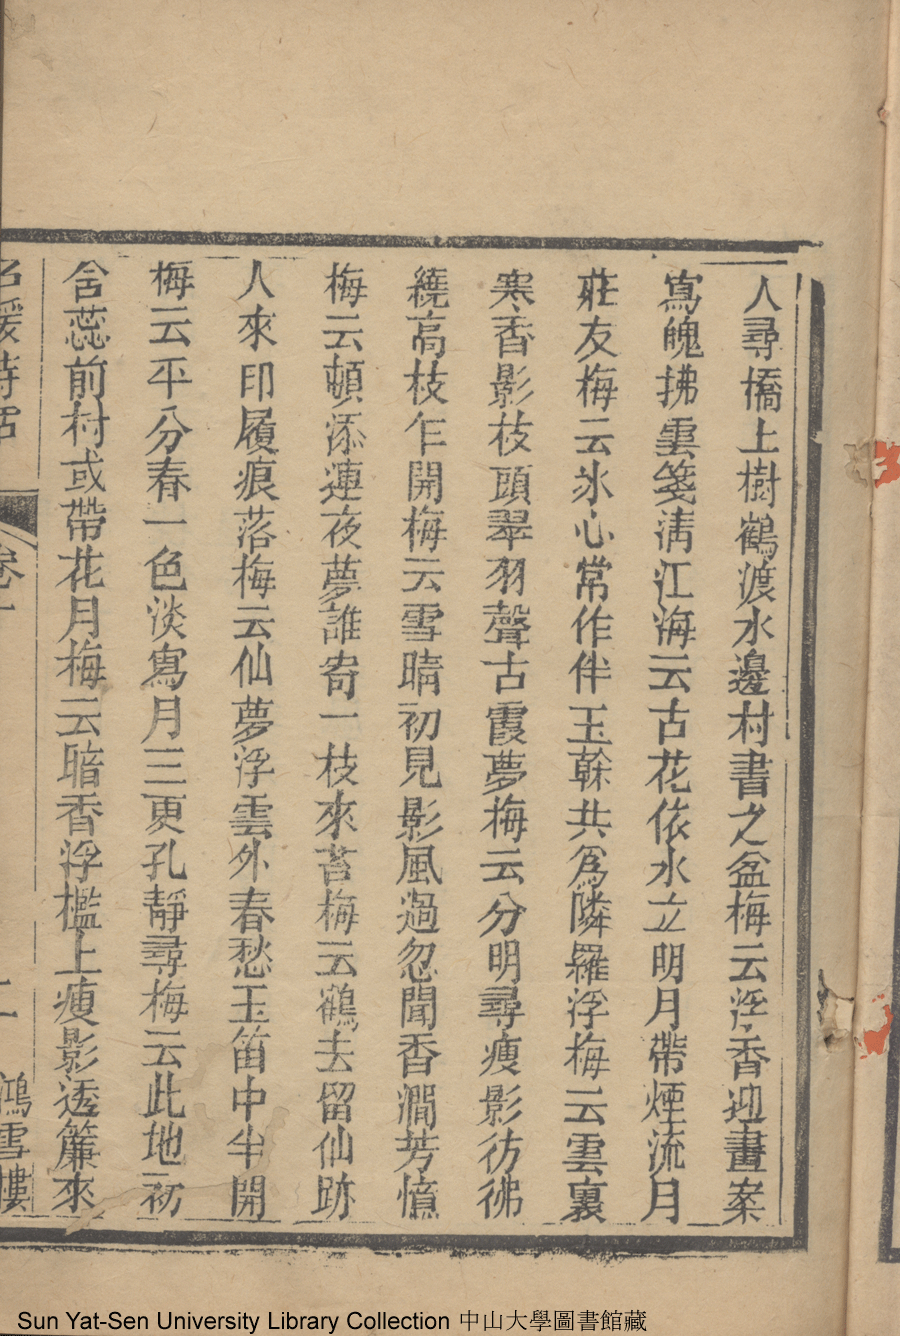 人尋橋上樹鶴渡水邊村書之盆梅云浮香迎畫案
寫魄拂雲箋清江海云古花依水立明月帶煙流月
莊友梅云氷心常作伴玉榦共爲隣羅浮梅云雲裏
寒香影枝頭翠羽聲古霞夢梅云分明尋瘦影彷彿
繞高枝乍開梅云雪晴初見影風過忽聞香澗芳憶
梅云頓添連夜夢誰寄一枝來苔梅云鶴去留仙跡
人來印履痕落梅云仙夢浮雲外春愁玉笛中半開
梅云平分春一色淡寫月三更孔靜尋梅云此地初
含蕊前村或帶花月梅云暗香浮檻上瘦影透簾來
名媛詩話 卷一 二 鴻雪樓
Sun Yat-Sen University Library Collection 中山大學圖書館藏